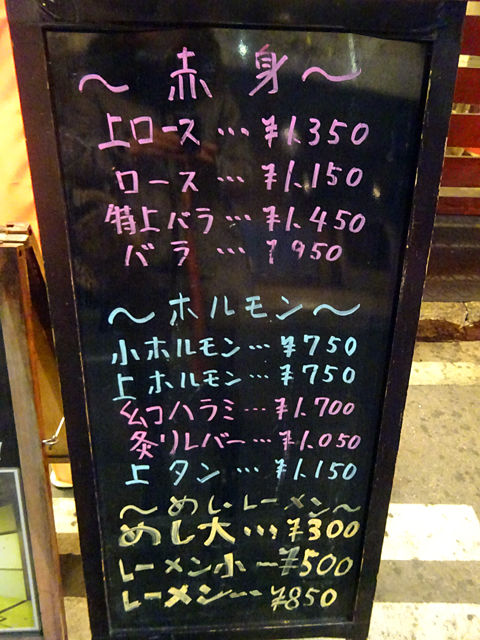 ～赤身～
上ロース…¥1.350
ロース…¥1.150
特上バラ…¥1.450
バラ…¥950
～ホルモン～
小ホルモン…¥750
上ホルモン…¥750
幻ハラミ…¥1.700
炙りレバー…¥1.050
上タン…¥1.150
～めし・レーメン～
めし大…¥300
レーメン小ー¥500
レーメン…¥850